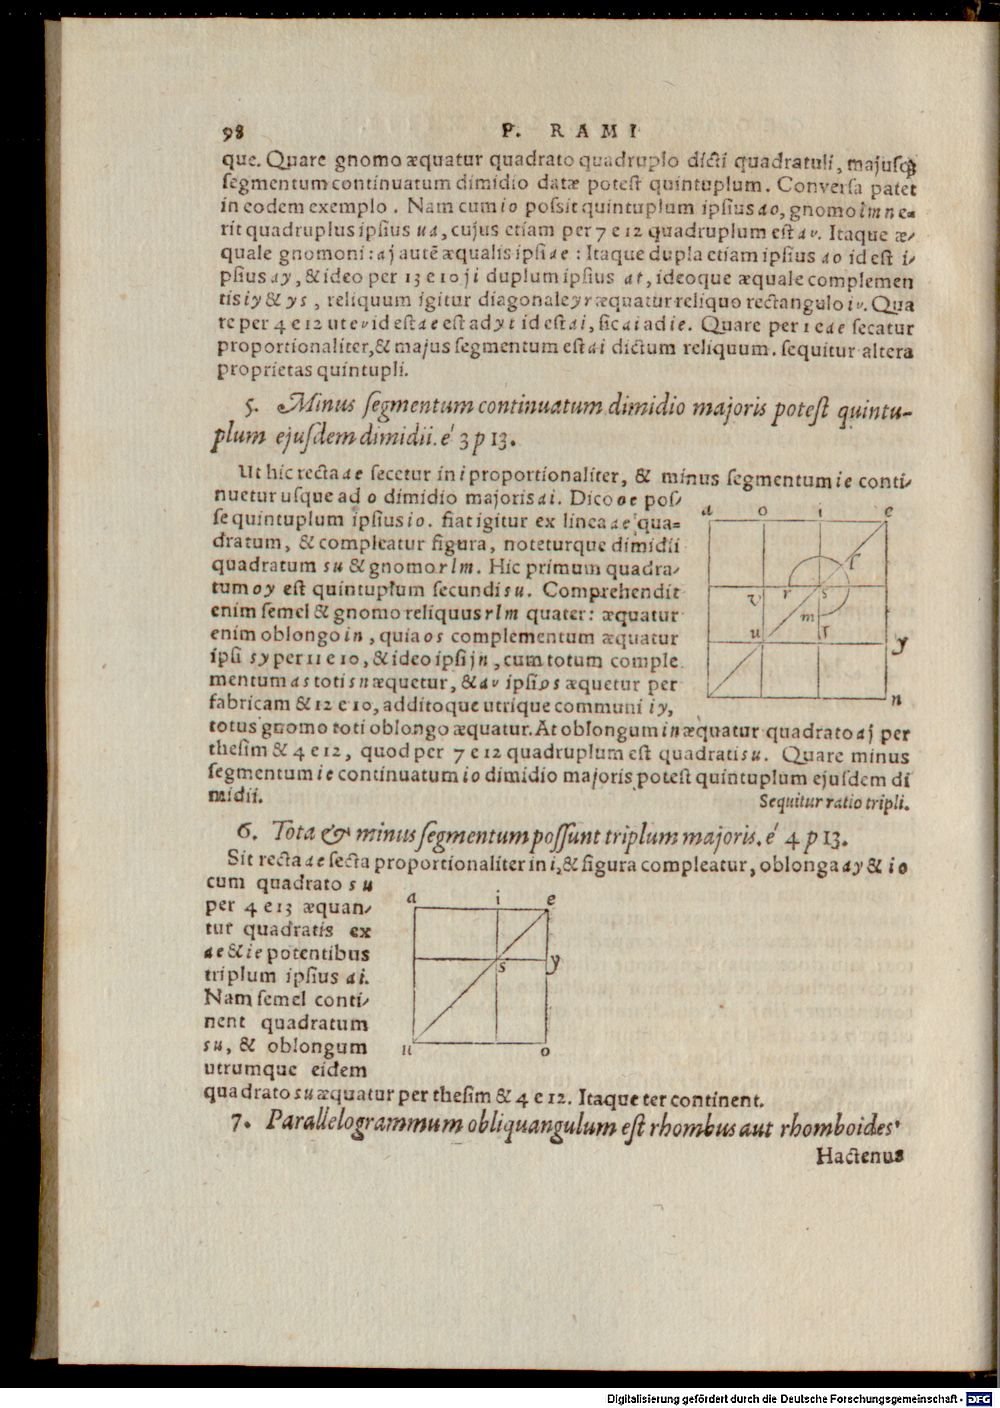 98 P. RAMI
que. Quare gnomo æquatur quadrato quadruplo dicti quadratuli, majusq́;
segmentum continuatum dimidio datæ potest quintuplum. Conversa patet
in eodem exemplo. Nam cum io possit quintuplum ipsius ao, gnomo lmn e-
rit quadruplus ipsius ua, cujus etiam per 7 e 12 quadruplum est av. Itaque æ-
quale gnomoni: aj autē æqualis ipsi ae: Itaque dupla etiam ipsius ao id est i-
psius ay, & ideo per 13 e 10 ji duplum ipsius at, ideoque æquale complemen
tis iy & ys, reliquum igitur diagonale yr æquatur reliquo rectangulo iv. Qua
re per 4 e 12 ut ev id est ae est ad yt id est ai, sic ai ad ie. Quare per 1 e ae secatur
proportionaliter, & majus segmentum est ai dictum reliquum. sequitur altera
proprietas quintupli.
5. Minus segmentum continuatum dimidio majoris potest quintu-
plum ejusdem dimidii. é 3 p 13.
Ut hic recta ae secetur in i proportionaliter, & minus segmentum ie conti-
nuetur usque ad o dimidio majoris ai. Dico oe pos-
se quintuplum ipsius io. fiat igitur ex linea ae qua-
dratum, & compleatur figura, noteturque dimidii
quadratum su & gnomo rlm. Hic primum quadra-
tum oy est quintuplum secundi su. Comprehendit
enim semel & gnomo reliquus rlm quater: æquatur
enim oblongo in, quia os complementum æquatur
ipsi sy per 11 e 10, & ideo ipsi jn, cum totum comple
mentum as toti sn æquetur, & av ipsi os æquetur per
fabricam & 12 e 10, additoque utrique communi iy,
totus gnomo toti oblongo æquatur. At oblongum in æquatur quadrato aj per
thesim & 4 e 12, quod per 7 e 12 quadruplum est quadrati su. Quare minus
segmentum ie continuatum io dimidio majoris potest quintuplum ejusdem di
midii.
Sequitur ratio tripli.
a o i e
l
v r s
m
u T y
n
6. Tota & minus segmentum possunt triplum majoris. é 4 p 13.
Sit recta ae secta proportionaliter in i, & figura compleatur, oblonga ay & io
cum quadrato su
per 4 e 13 æquan-
tur quadratis ex
ae & ie potentibus
triplum ipsius ai.
Nam semel conti-
nent quadratum
su, & oblongum
utrumque eidem
quadrato su æquatur per thesim & 4 e 12. Itaque ter continent.
a i e
s y
u o
7. Parallelogrammum obliquangulum est rhombus aut rhomboides
Hactenus
Digitalisierung gefördert durch die Deutsche Forschungsgemeinschaft - DFG